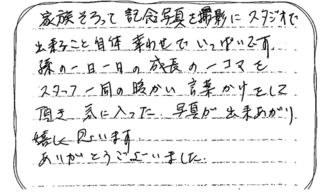 家族そろって記念写真を撮影にスタジオで
出来ること自体幸わせでいっぱいです。
孫の一日一日の成長の一コマを
スタッフ一同の暖かい言葉かけをして
頂き気に入った写真が出来あがり
嬉しく思います
ありがとうございました。